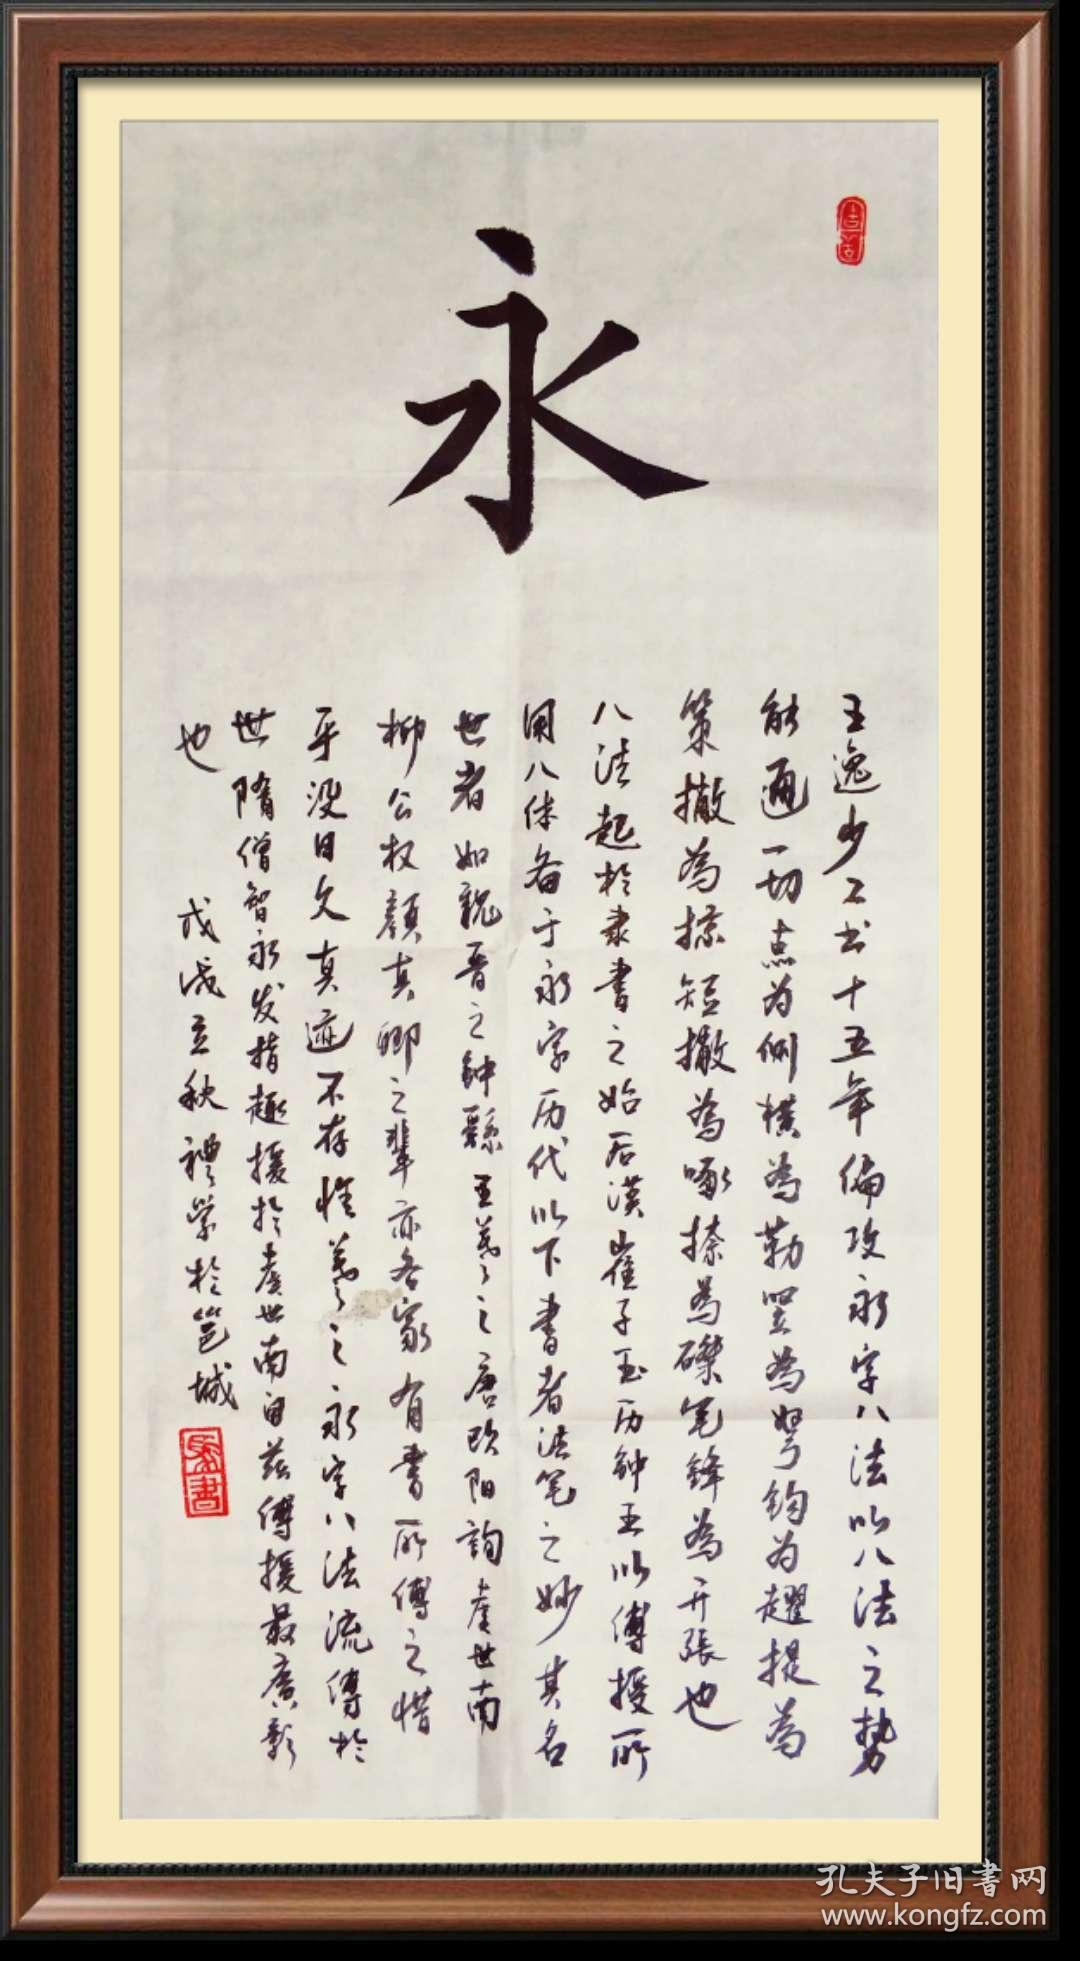 永
王逸少工书十五年偏攻永字八法以八法之势
能通一切点为侧横為勒竖為努钩为趯提為
策撇為掠短撇為啄捺為磔笔鋒為开張也
八法起於隶書之始后漢崔子玉历钟王以傅授所
用八体备于永字历代以下書者法笔之妙其名
世者如魏晋之钟繇王羲之唐欧阳詢虞世南
柳公权顔真卿之辈亦各家有書所傅之惜
乎没日久真迹不存惟羲之永字八法流傅於
世隋僧智永发指趣援於虞世南自兹傅授最廣彰
也
戊戌立秋禮学於邕城
孔夫子旧書网
www.kongfz.com